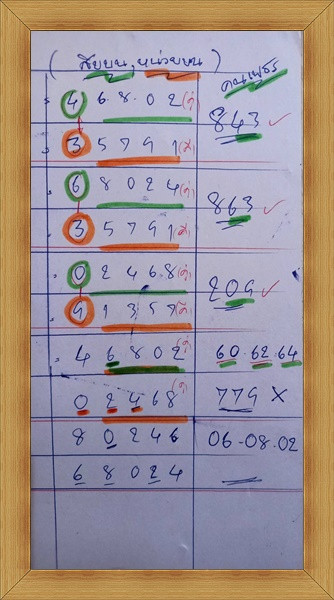 ( สิบบน, หน่วยบน )
คนเพชร
4 6 8 0 2 (คู่)
843 ✓
3 5 7 9 1 (คี่)
6 8 0 2 4 (คู่)
863 ✓
3 5 7 9 1 (คี่)
0 2 4 6 8 (คู่)
209 ✓
9 1 3 5 7 (คี่)
4 6 8 0 2 (คู่) 60-62-64
0 2 4 6 8 (คู่) 779 X
8 0 2 4 6 06-08-02
6 8 0 2 4